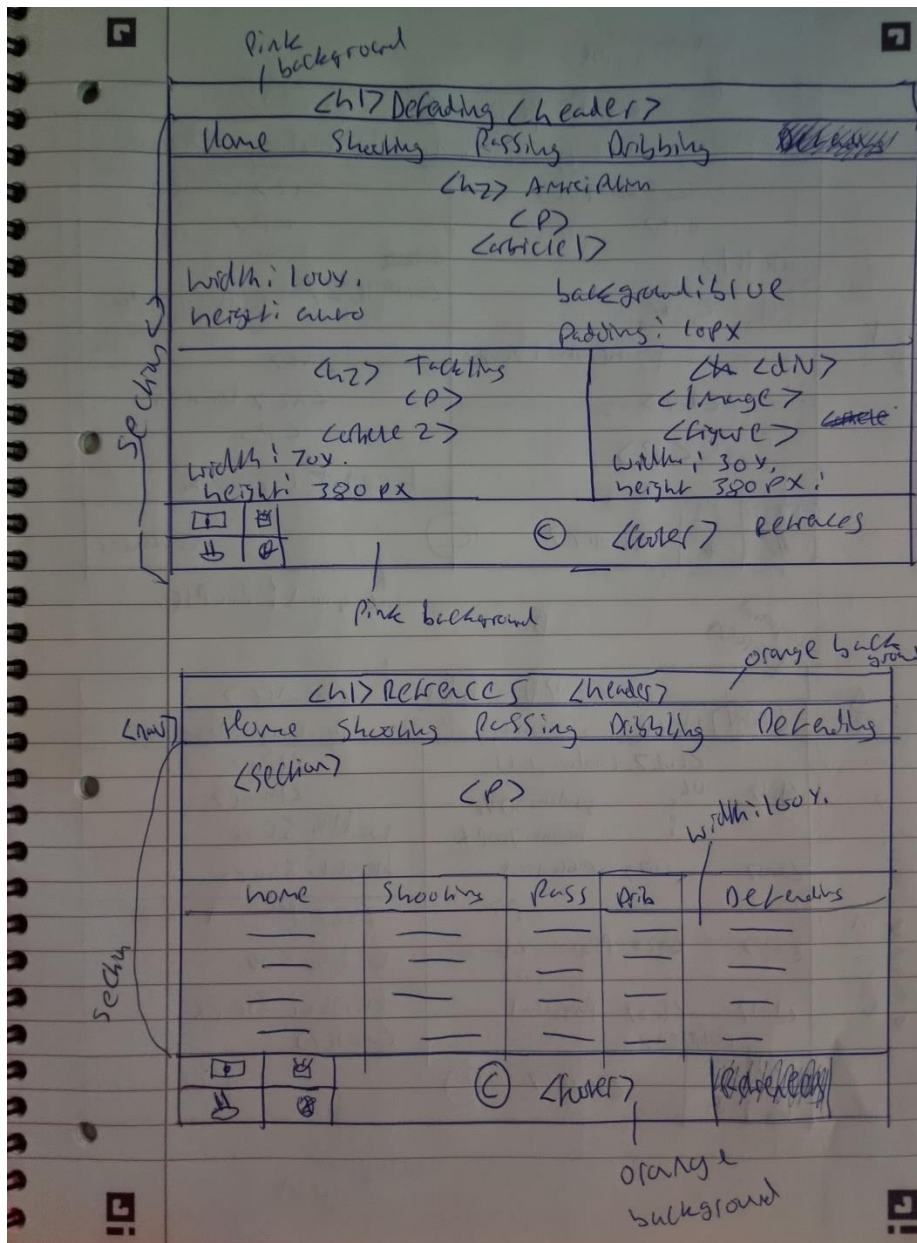 Pink
background
<h1> Defending <header>
Home Shooting Passing Dribbing
<h2>
<P>
<article 1>
width: 100%.
height: auto
background: blue
Padding: 10px
Section
<h2> Tackling
<P>
<article 2>
width: 70%.
height: 380px
<div>
<Image>
<figure>
width: 30%.
height 380px:
© <footer> Refraces
Pink background
orange background
<h1> Refraces <header>
<nav>
Home Shooting Passing Dribbling Defending
<section>
<P>
width: 100%.
Section
home Shooting Pass Drib Defending
© <footer>
orange
background